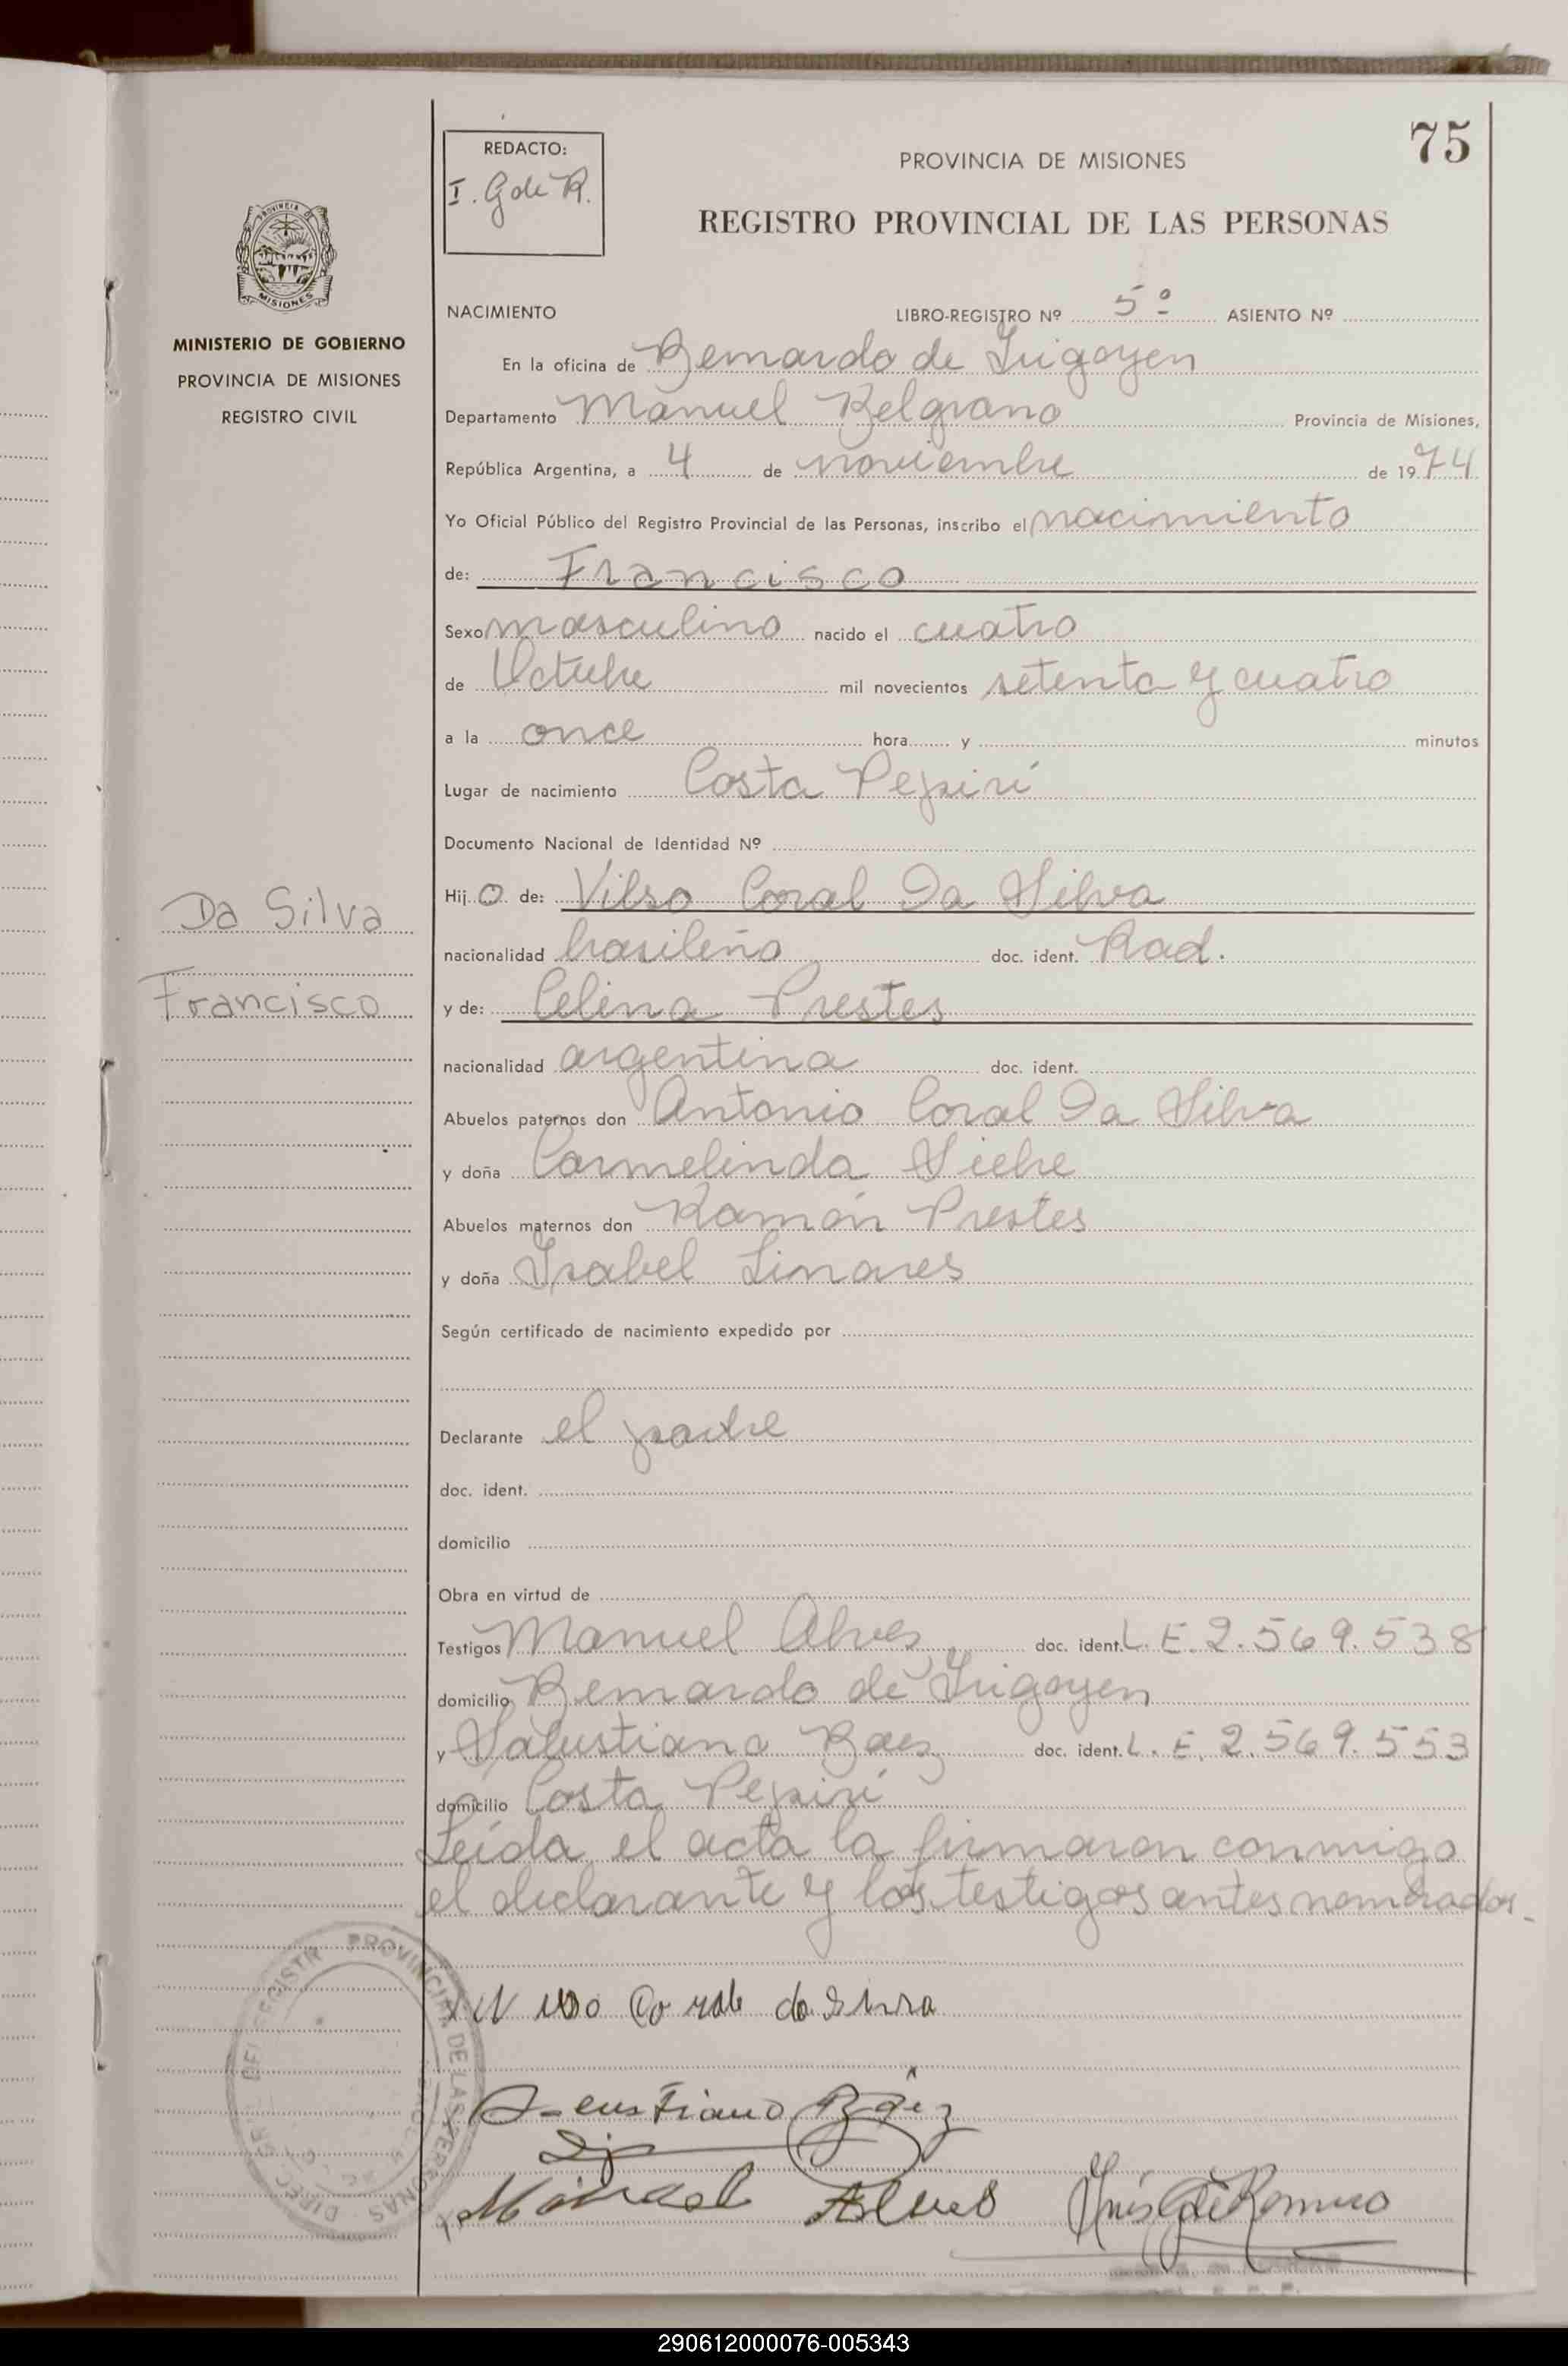 75
REDACTO:
I. G de R.
PROVINCIA DE MISIONES
REGISTRO PROVINCIAL DE LAS PERSONAS
PROVINCIA DE
MISIONES
MINISTERIO DE GOBIERNO
PROVINCIA DE MISIONES
REGISTRO CIVIL
NACIMIENTO LIBRO-REGISTRO Nº 5º ASIENTO Nº
En la oficina de Bernardo de Irigoyen
Departamento Manuel Belgrano Provincia de Misiones,
República Argentina, a 4 de noviembre de 1974
Yo Oficial Público del Registro Provincial de las Personas, inscribo el nacimiento
de: Francisco
Sexo masculino nacido el cuatro
de Octubre mil novecientos setenta y cuatro
a la once hora y minutos
Lugar de nacimiento Costa Pepirí
Documento Nacional de Identidad Nº
Da Silva
Francisco
Hij o de: Vilso Coral Da Silva
nacionalidad brasileño doc. ident. Rad.
y de: Celina Prestes
nacionalidad argentina doc. ident.
Abuelos paternos don Antonio Coral Da Silva
y doña Carmelinda Siebre
Abuelos maternos don Ramón Prestes
y doña Isabel Linares
Según certificado de nacimiento expedido por
Declarante el padre
doc. ident.
domicilio
Obra en virtud de
Testigos Manuel Alves, doc. ident. L. E. 2.569.538
domicilio Bernardo de Irigoyen
y Salustiano Baez doc. ident. L. E. 2.569.553
domicilio Costa Pepirí
Leída el acta la firmaron conmigo
el declarante y los testigos antes nombrados.-
PROVINCIAL DE LAS PERSONAS
Co rale da Silvra
Baez
Manuel Alves Inés G de Romero
290612000076-005343